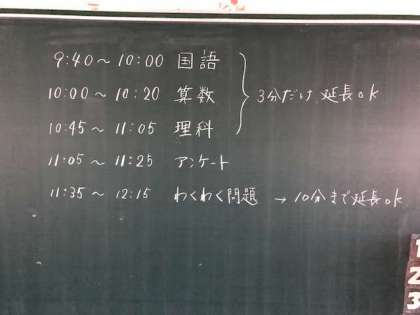 9:40～10:00 国語
10:00～10:20 算数
3分だけ 延長ok
10:45～11:05 理科
11:05～11:25 アンケート
11:35～12:15 わくわく問題 → 10分まで延長ok
1
2
3